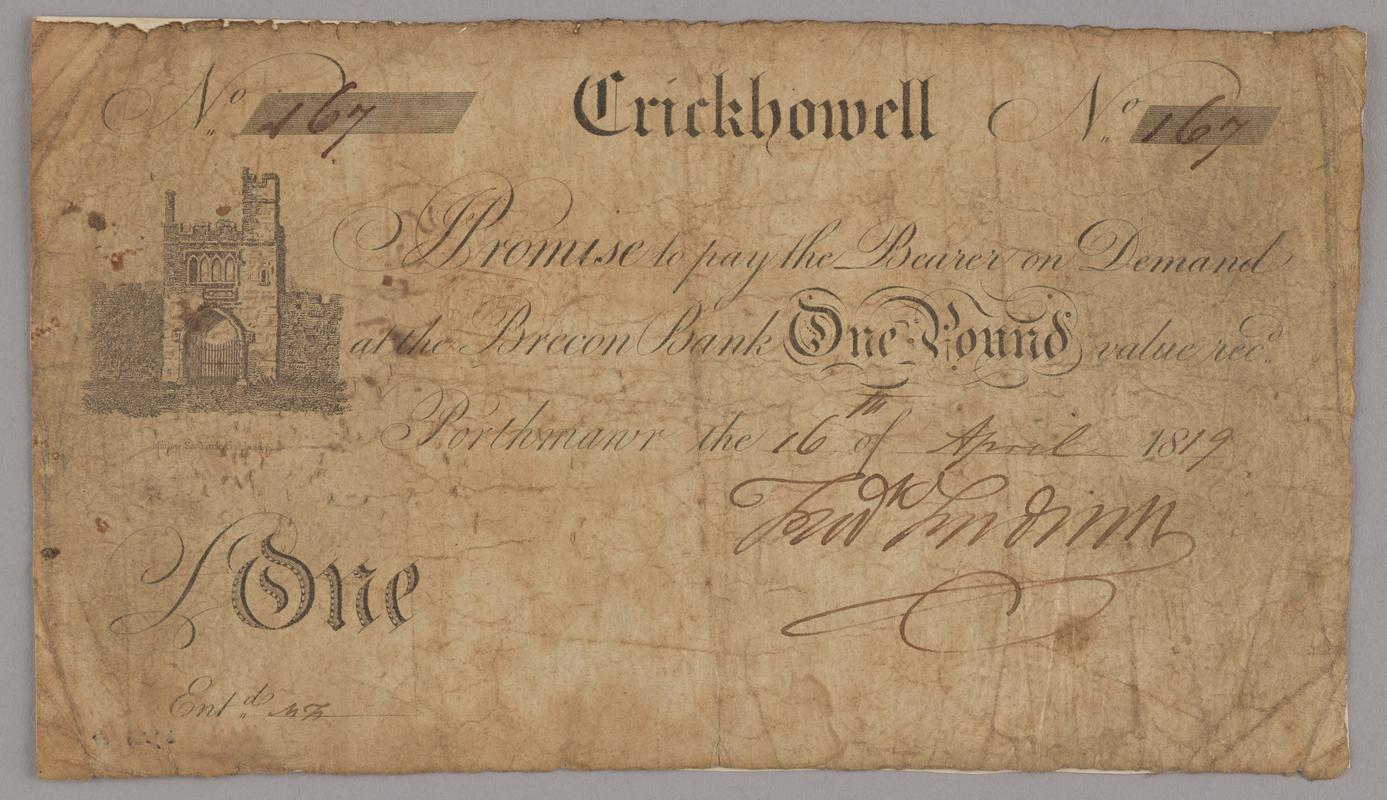 No 167 Crickhowell No 167
I Promise to pay the Bearer on Demand
at the Brecon Bank One Pound value recd.
Porthmawr the 16th of April 1819
Fredk
£ One
Entd.